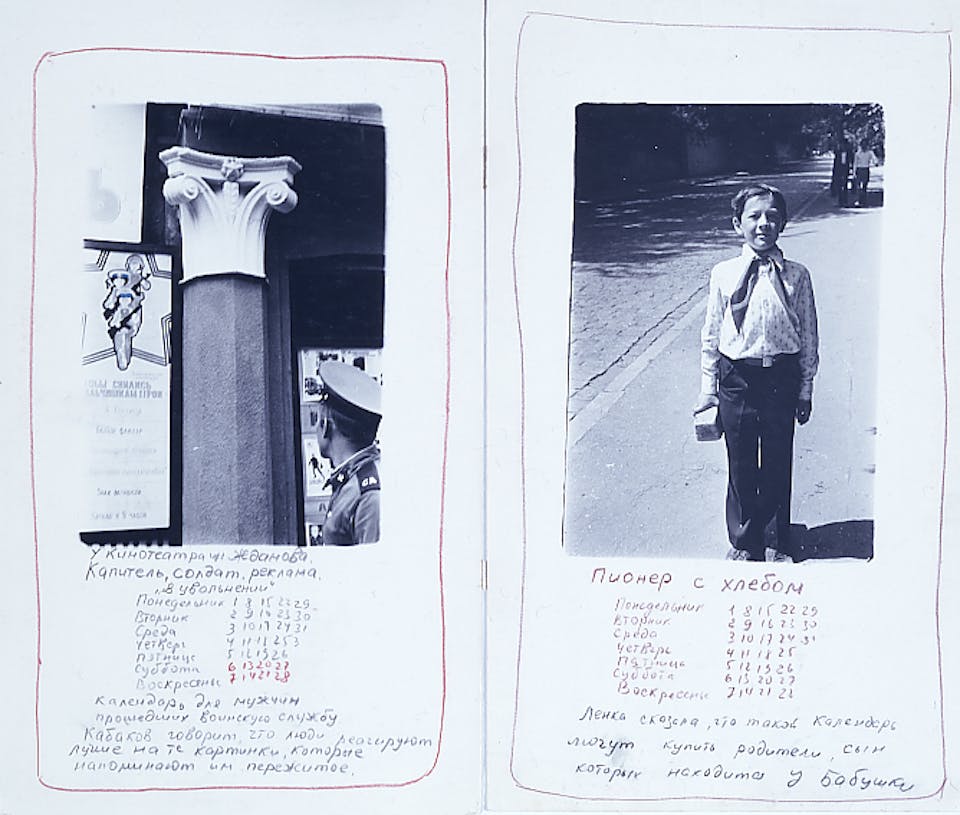 СНИЛИСЬ
У кинотеатра им Жданова.
Капитель, солдат, реклама.
"в увольнении"
Понедельник 1 8 15 22 29
Вторник 2 9 16 23 30
Среда 3 10 17 24 31
Четверг 4 11 18 25
Пятница 5 12 19 26
Суббота 6 13 20 27
Воскресены 7 14 21 28
календарь для мужчин
прошедших воинскую службу
Кабаков говорит, что люди реагируют
лучше на те картинки, которые
напоминают им пережитое.
Пионер с хлебом
Понедельник 1 8 15 22 29
Вторник 2 9 16 23 30
Среда 3 10 17 24 31
Четверг 4 11 18 25
Пятница 5 12 19 26
Суббота 6 13 20 27
Воскресены 7 14 21
Ленка сказала, что такой календарь
могут купить родители, сын
которых находится у бабушки